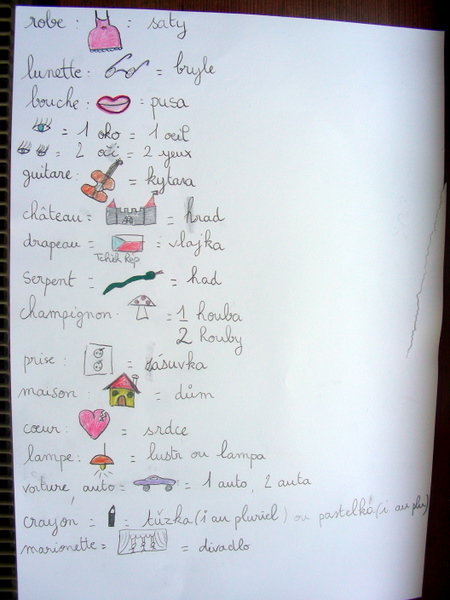 robe : : saty
lunette : = bryle
bouche : = pusa
= 1 oko = 1 oeil
= 2 oči = 2 yeux
guitare : = kytara
château = = hrad
drapeau = = vlajka
Tchèk Rép
serpent : = had
champignon : = 1 houba
2 houby
prise : = zásuvka
maison : = dům
cœur : = srdce
lampe : = lustr ou lampa
voiture, auto = = 1 auto, 2 auta
crayon = = tužka (i au pluriel) ou pastelka (i au plu)
marionette = = divadlo